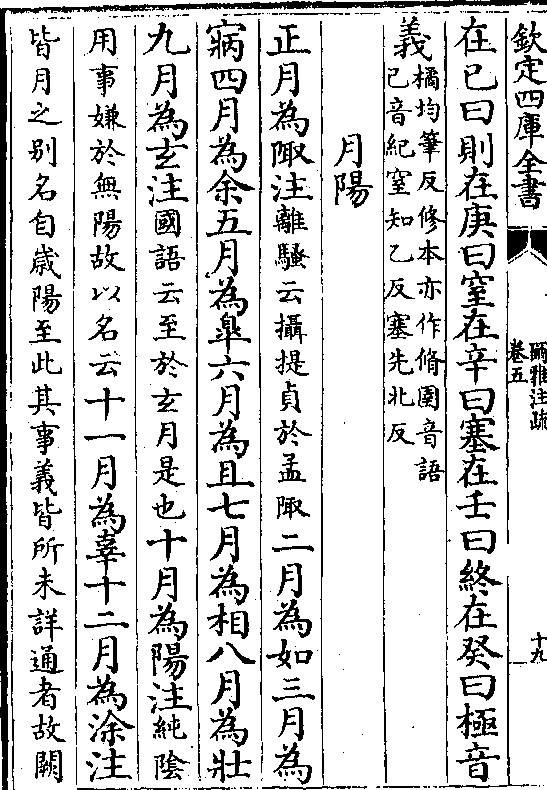 欽定四庫全書
爾雅注疏
卷五
十九
在己曰則在庚曰窒在辛曰塞在壬曰終在癸曰極音
義橘均筆反修本亦作脩圉音語
己音紀窒知乙反塞先北反
月陽
正月為陬注離騷云攝提貞於孟陬二月為如三月為
寎四月為余五月為臯六月為且七月為相八月為壯
九月為玄注國語云至於玄月是也十月為陽注純陰
用事嫌於無陽故以名云十一月為辜十二月為涂注
皆月之别名自歲陽至此其事義皆所未詳通者故闕